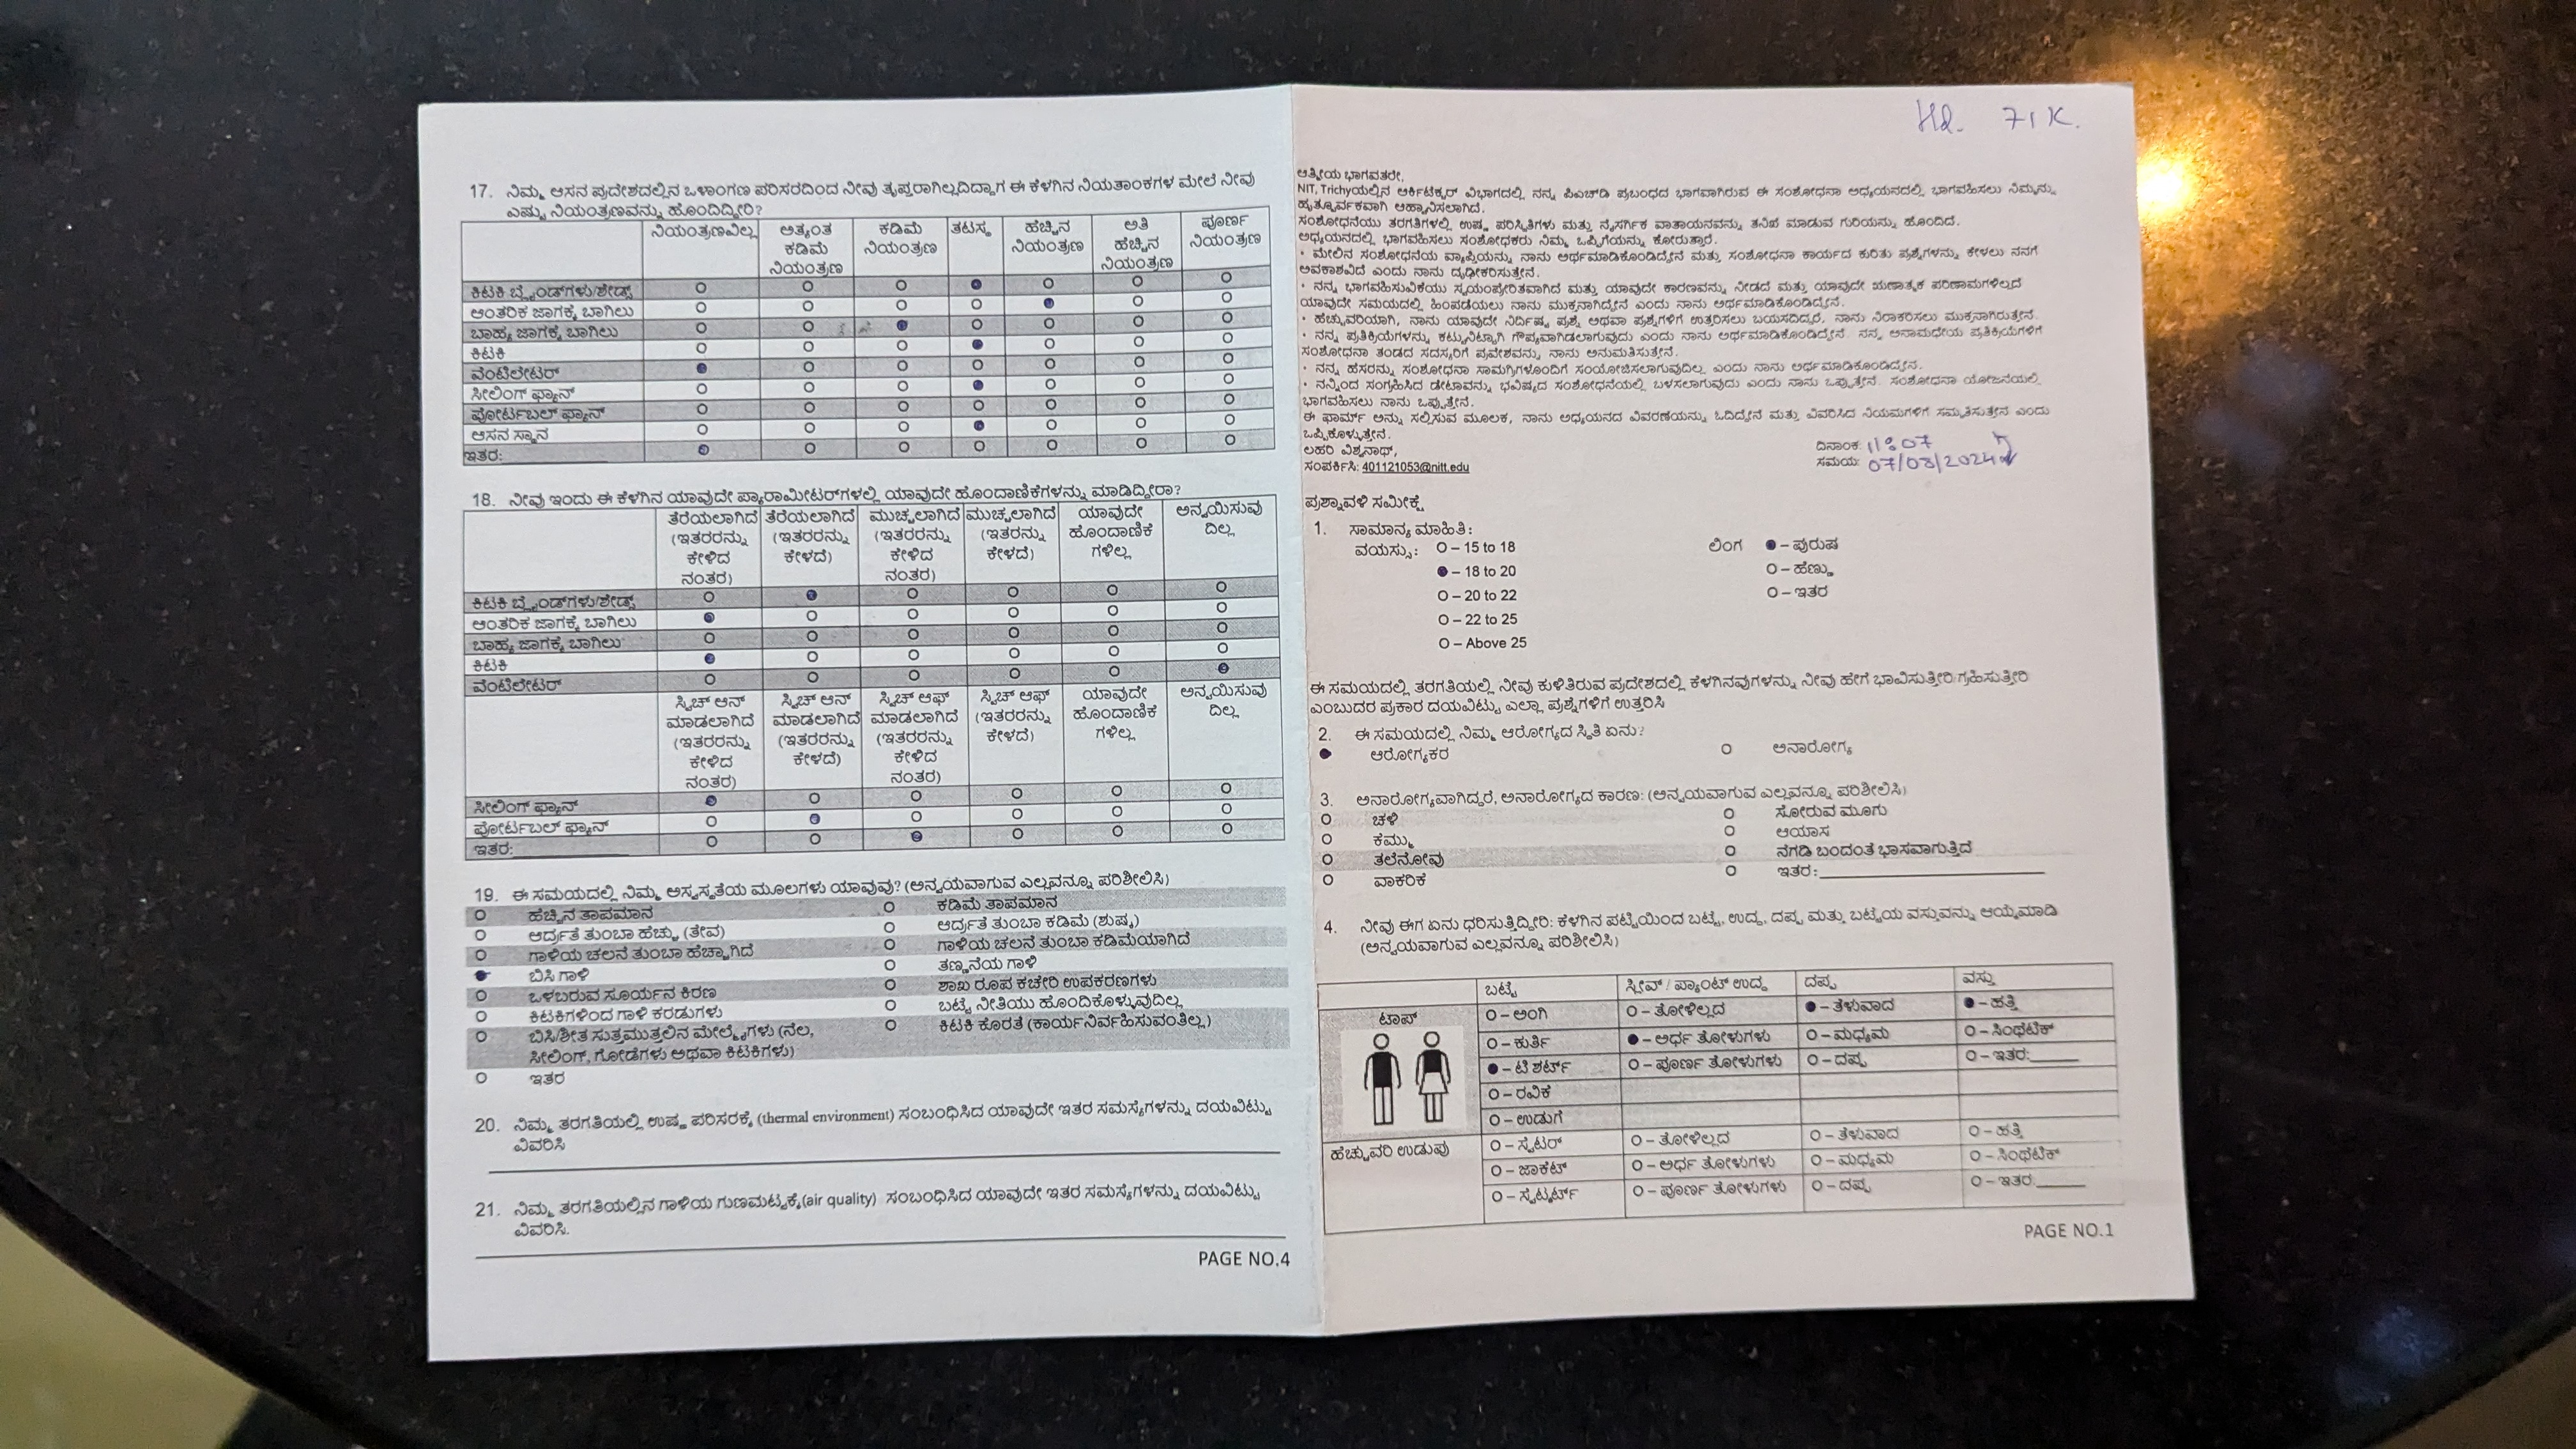 17. ನಿಮ್ಮ ಆಸನ ಪ್ರದೇಶದಲ್ಲಿನ ಒಳಾಂಗಣ ಪರಿಸರದಿಂದ ನೀವು ತೃಪ್ತರಾಗಿಲ್ಲದಿದ್ದಾಗ ಈ ಕೆಳಗಿನ ನಿಯತಾಂಕಗಳ ಮೇಲೆ ನೀವು
ಎಷ್ಟು ನಿಯಂತ್ರಣವನ್ನು ಹೊಂದಿದ್ದೀರಿ?
ನಿಯಂತ್ರಣವಿಲ್ಲ ಅತ್ಯಂತ ಕಡಿಮೆ ನಿಯಂತ್ರಣ ಕಡಿಮೆ ನಿಯಂತ್ರಣ ತಟಸ್ಥ ಹೆಚ್ಚಿನ ನಿಯಂತ್ರಣ ಅತಿ ಹೆಚ್ಚಿನ ನಿಯಂತ್ರಣ ಪೂರ್ಣ ನಿಯಂತ್ರಣ
ಕಿಟಕಿ ಬ್ಲೈಂಡ್‌ಗಳು/ಶೇಡ್ಸ್
ಆಂತರಿಕ ಜಾಗಕ್ಕೆ ಬಾಗಿಲು
ಬಾಹ್ಯ ಜಾಗಕ್ಕೆ ಬಾಗಿಲು
ಕಿಟಕಿ
ವೆಂಟಿಲೇಟರ್
ಸೀಲಿಂಗ್ ಫ್ಯಾನ್
ಪೋರ್ಟಬಲ್ ಫ್ಯಾನ್
ಆಸನ ಸ್ಥಾನ
ಇತರ:
18. ನೀವು ಇಂದು ಈ ಕೆಳಗಿನ ಯಾವುದೇ ಪ್ಯಾರಾಮೀಟರ್‌ಗಳಲ್ಲಿ ಯಾವುದೇ ಹೊಂದಾಣಿಕೆಗಳನ್ನು ಮಾಡಿದ್ದೀರಾ?
ತೆರೆಯಲಾಗಿದೆ (ಇತರರನ್ನು ಕೇಳಿದ ನಂತರ) ತೆರೆಯಲಾಗಿದೆ (ಇತರರನ್ನು ಕೇಳದೆ) ಮುಚ್ಚಲಾಗಿದೆ (ಇತರರನ್ನು ಕೇಳಿದ ನಂತರ) ಮುಚ್ಚಲಾಗಿದೆ (ಇತರನ್ನು ಕೇಳದೆ) ಯಾವುದೇ ಹೊಂದಾಣಿಕೆ ಗಳಿಲ್ಲ ಅನ್ವಯಿಸುವು ದಿಲ್ಲ
ಕಿಟಕಿ ಬ್ಲೈಂಡ್‌ಗಳು/ಶೇಡ್ಸ್
ಆಂತರಿಕ ಜಾಗಕ್ಕೆ ಬಾಗಿಲು
ಬಾಹ್ಯ ಜಾಗಕ್ಕೆ ಬಾಗಿಲು
ಕಿಟಕಿ
ವೆಂಟಿಲೇಟರ್
ಸ್ವಿಚ್ ಆನ್ ಮಾಡಲಾಗಿದೆ (ಇತರರನ್ನು ಕೇಳಿದ ನಂತರ) ಸ್ವಿಚ್ ಆನ್ ಮಾಡಲಾಗಿದೆ (ಇತರರನ್ನು ಕೇಳದೆ) ಸ್ವಿಚ್ ಆಫ್ ಮಾಡಲಾಗಿದೆ (ಇತರರನ್ನು ಕೇಳಿದ ನಂತರ) ಸ್ವಿಚ್ ಆಫ್ (ಇತರರನ್ನು ಕೇಳದೆ) ಯಾವುದೇ ಹೊಂದಾಣಿಕೆ ಗಳಿಲ್ಲ ಅನ್ವಯಿಸುವು ದಿಲ್ಲ
ಸೀಲಿಂಗ್ ಫ್ಯಾನ್
ಪೋರ್ಟಬಲ್ ಫ್ಯಾನ್
ಇತರ:
19. ಈ ಸಮಯದಲ್ಲಿ ನಿಮ್ಮ ಅಸ್ವಸ್ಥತೆಯ ಮೂಲಗಳು ಯಾವುವು? (ಅನ್ವಯವಾಗುವ ಎಲ್ಲವನ್ನೂ ಪರಿಶೀಲಿಸಿ)
ಹೆಚ್ಚಿನ ತಾಪಮಾನ ಕಡಿಮೆ ತಾಪಮಾನ
ಆರ್ದ್ರತೆ ತುಂಬಾ ಹೆಚ್ಚು (ತೇವ) ಆರ್ದ್ರತೆ ತುಂಬಾ ಕಡಿಮೆ (ಶುಷ್ಕ)
ಗಾಳಿಯ ಚಲನೆ ತುಂಬಾ ಹೆಚ್ಚಾಗಿದೆ ಗಾಳಿಯ ಚಲನೆ ತುಂಬಾ ಕಡಿಮೆಯಾಗಿದೆ
ಬಿಸಿ ಗಾಳಿ ತಣ್ಣನೆಯ ಗಾಳಿ
ಒಳಬರುವ ಸೂರ್ಯನ ಕಿರಣ ಶಾಖ ರೂಪ ಕಚೇರಿ ಉಪಕರಣಗಳು
ಕಿಟಕಿಗಳಿಂದ ಗಾಳಿ ಕರಡುಗಳು ಬಟ್ಟೆ ನೀತಿಯು ಹೊಂದಿಕೊಳ್ಳುವುದಿಲ್ಲ
ಬಿಸಿ/ಶೀತ ಸುತ್ತಮುತ್ತಲಿನ ಮೇಲ್ಮೈಗಳು (ನೆಲ, ಕಿಟಕಿ ಕೊರತೆ (ಕಾರ್ಯನಿರ್ವಹಿಸುವಂತಿಲ್ಲ)
ಸೀಲಿಂಗ್, ಗೋಡೆಗಳು ಅಥವಾ ಕಿಟಕಿಗಳು)
ಇತರ
20. ನಿಮ್ಮ ತರಗತಿಯಲ್ಲಿ ಉಷ್ಣ ಪರಿಸರಕ್ಕೆ (thermal environment) ಸಂಬಂಧಿಸಿದ ಯಾವುದೇ ಇತರ ಸಮಸ್ಯೆಗಳನ್ನು ದಯವಿಟ್ಟು
ವಿವರಿಸಿ
21. ನಿಮ್ಮ ತರಗತಿಯಲ್ಲಿನ ಗಾಳಿಯ ಗುಣಮಟ್ಟಕ್ಕೆ(air quality) ಸಂಬಂಧಿಸಿದ ಯಾವುದೇ ಇತರ ಸಮಸ್ಯೆಗಳನ್ನು ದಯವಿಟ್ಟು
ವಿವರಿಸಿ.
PAGE NO.4
71 K.
ಆತ್ಮೀಯ ಭಾಗವತರೇ,
NIT, Trichyಯಲ್ಲಿನ ಆರ್ಕಿಟೆಕ್ಚರ್ ವಿಭಾಗದಲ್ಲಿ ನನ್ನ ಪಿಎಚ್‌ಡಿ ಪ್ರಬಂಧದ ಭಾಗವಾಗಿರುವ ಈ ಸಂಶೋಧನಾ ಅಧ್ಯಯನದಲ್ಲಿ ಭಾಗವಹಿಸಲು ನಿಮ್ಮನ್ನು
ಹೃತ್ಪೂರ್ವಕವಾಗಿ ಆಹ್ವಾನಿಸಲಾಗಿದೆ.
ಸಂಶೋಧನೆಯು ತರಗತಿಗಳಲ್ಲಿ ಉಷ್ಣ ಪರಿಸ್ಥಿತಿಗಳು ಮತ್ತು ನೈಸರ್ಗಿಕ ವಾತಾಯನವನ್ನು ತನಿಖೆ ಮಾಡುವ ಗುರಿಯನ್ನು ಹೊಂದಿದೆ.
ಅಧ್ಯಯನದಲ್ಲಿ ಭಾಗವಹಿಸಲು ಸಂಶೋಧಕರು ನಿಮ್ಮ ಒಪ್ಪಿಗೆಯನ್ನು ಕೋರುತ್ತಾರೆ.
• ಮೇಲಿನ ಸಂಶೋಧನೆಯ ವ್ಯಾಪ್ತಿಯನ್ನು ನಾನು ಅರ್ಥಮಾಡಿಕೊಂಡಿದ್ದೇನೆ ಮತ್ತು ಸಂಶೋಧನಾ ಕಾರ್ಯದ ಕುರಿತು ಪ್ರಶ್ನೆಗಳನ್ನು ಕೇಳಲು ನನಗೆ
ಅವಕಾಶವಿದೆ ಎಂದು ನಾನು ದೃಢೀಕರಿಸುತ್ತೇನೆ.
• ನನ್ನ ಭಾಗವಹಿಸುವಿಕೆಯು ಸ್ವಯಂಪ್ರೇರಿತವಾಗಿದೆ ಮತ್ತು ಯಾವುದೇ ಕಾರಣವನ್ನು ನೀಡದೆ ಮತ್ತು ಯಾವುದೇ ಋಣಾತ್ಮಕ ಪರಿಣಾಮಗಳಿಲ್ಲದೆ
ಯಾವುದೇ ಸಮಯದಲ್ಲಿ ಹಿಂಪಡೆಯಲು ನಾನು ಮುಕ್ತನಾಗಿದ್ದೇನೆ ಎಂದು ನಾನು ಅರ್ಥಮಾಡಿಕೊಂಡಿದ್ದೇನೆ.
• ಹೆಚ್ಚುವರಿಯಾಗಿ, ನಾನು ಯಾವುದೇ ನಿರ್ದಿಷ್ಟ ಪ್ರಶ್ನೆ ಅಥವಾ ಪ್ರಶ್ನೆಗಳಿಗೆ ಉತ್ತರಿಸಲು ಬಯಸದಿದ್ದರೆ, ನಾನು ನಿರಾಕರಿಸಲು ಮುಕ್ತನಾಗಿರುತ್ತೇನೆ.
• ನನ್ನ ಪ್ರತಿಕ್ರಿಯೆಗಳನ್ನು ಕಟ್ಟುನಿಟ್ಟಾಗಿ ಗೌಪ್ಯವಾಗಿಡಲಾಗುವುದು ಎಂದು ನಾನು ಅರ್ಥಮಾಡಿಕೊಂಡಿದ್ದೇನೆ. ನನ್ನ ಅನಾಮಧೇಯ ಪ್ರತಿಕ್ರಿಯೆಗಳಿಗೆ
ಸಂಶೋಧನಾ ತಂಡದ ಸದಸ್ಯರಿಗೆ ಪ್ರವೇಶವನ್ನು ನಾನು ಅನುಮತಿಸುತ್ತೇನೆ.
• ನನ್ನ ಹೆಸರನ್ನು ಸಂಶೋಧನಾ ಸಾಮಗ್ರಿಗಳೊಂದಿಗೆ ಸಂಯೋಜಿಸಲಾಗುವುದಿಲ್ಲ ಎಂದು ನಾನು ಅರ್ಥಮಾಡಿಕೊಂಡಿದ್ದೇನೆ.
• ನನ್ನಿಂದ ಸಂಗ್ರಹಿಸಿದ ಡೇಟಾವನ್ನು ಭವಿಷ್ಯದ ಸಂಶೋಧನೆಯಲ್ಲಿ ಬಳಸಲಾಗುವುದು ಎಂದು ನಾನು ಒಪ್ಪುತ್ತೇನೆ. ಸಂಶೋಧನಾ ಯೋಜನೆಯಲ್ಲಿ
ಭಾಗವಹಿಸಲು ನಾನು ಒಪ್ಪುತ್ತೇನೆ.
ಈ ಫಾರ್ಮ್ ಅನ್ನು ಸಲ್ಲಿಸುವ ಮೂಲಕ, ನಾನು ಅಧ್ಯಯನದ ವಿವರಣೆಯನ್ನು ಓದಿದ್ದೇನೆ ಮತ್ತು ವಿವರಿಸಿದ ನಿಯಮಗಳಿಗೆ ಸಮ್ಮತಿಸುತ್ತೇನೆ ಎಂದು
ಒಪ್ಪಿಕೊಳ್ಳುತ್ತೇನೆ.
ಲಹರಿ ವಿಶ್ವನಾಥ್,
ಸಂಪರ್ಕಿಸಿ: 401121053@nitt.edu
ದಿನಾಂಕ: 11:07
ಸಮಯ: 07/03/2024
ಪ್ರಶ್ನಾವಳಿ ಸಮೀಕ್ಷೆ
1. ಸಾಮಾನ್ಯ ಮಾಹಿತಿ:
ವಯಸ್ಸು: O – 15 to 18 ಲಿಂಗ – ಪುರುಷ
– 18 to 20 O – ಹೆಣ್ಣು
O – 20 to 22 O – ಇತರ
O – 22 to 25
O – Above 25
ಈ ಸಮಯದಲ್ಲಿ ತರಗತಿಯಲ್ಲಿ ನೀವು ಕುಳಿತಿರುವ ಪ್ರದೇಶದಲ್ಲಿ ಕೆಳಗಿನವುಗಳನ್ನು ನೀವು ಹೇಗೆ ಭಾವಿಸುತ್ತೀರಿ/ಗ್ರಹಿಸುತ್ತೀರಿ
ಎಂಬುದರ ಪ್ರಕಾರ ದಯವಿಟ್ಟು ಎಲ್ಲಾ ಪ್ರಶ್ನೆಗಳಿಗೆ ಉತ್ತರಿಸಿ
2. ಈ ಸಮಯದಲ್ಲಿ ನಿಮ್ಮ ಆರೋಗ್ಯದ ಸ್ಥಿತಿ ಏನು?
ಆರೋಗ್ಯಕರ ಅನಾರೋಗ್ಯ
3. ಅನಾರೋಗ್ಯವಾಗಿದ್ದರೆ, ಅನಾರೋಗ್ಯದ ಕಾರಣ: (ಅನ್ವಯವಾಗುವ ಎಲ್ಲವನ್ನೂ ಪರಿಶೀಲಿಸಿ)
ಚಳಿ ಸೋರುವ ಮೂಗು
ಕೆಮ್ಮು ಆಯಾಸ
ತಲೆನೋವು ನೆಗಡಿ ಬಂದಂತೆ ಭಾಸವಾಗುತ್ತಿದೆ
ವಾಕರಿಕೆ ಇತರ:
4. ನೀವು ಈಗ ಏನು ಧರಿಸುತ್ತಿದ್ದೀರಿ: ಕೆಳಗಿನ ಪಟ್ಟಿಯಿಂದ ಬಟ್ಟೆ, ಉದ್ದ, ದಪ್ಪ ಮತ್ತು ಬಟ್ಟೆಯ ವಸ್ತುವನ್ನು ಆಯ್ಕೆಮಾಡಿ
(ಅನ್ವಯವಾಗುವ ಎಲ್ಲವನ್ನೂ ಪರಿಶೀಲಿಸಿ)
ಬಟ್ಟೆ ಸ್ಲೀವ್ / ಪ್ಯಾಂಟ್ ಉದ್ದ ದಪ್ಪ ವಸ್ತು
ಟಾಪ್ O – ಅಂಗಿ O – ತೋಳಿಲ್ಲದ – ತೆಳುವಾದ – ಹತ್ತಿ
O – ಕುರ್ತಿ – ಅರ್ಧ ತೋಳುಗಳು O – ಮಧ್ಯಮ O – ಸಿಂಥೆಟಿಕ್
– ಟಿ ಶರ್ಟ್ O – ಪೂರ್ಣ ತೋಳುಗಳು O – ದಪ್ಪ O – ಇತರ:
O – ರವಿಕೆ
O – ಉಡುಗೆ
ಹೆಚ್ಚುವರಿ ಉಡುಪು O – ಸ್ವೆಟರ್ O – ತೋಳಿಲ್ಲದ O – ತೆಳುವಾದ O – ಹತ್ತಿ
O – ಜಾಕೆಟ್ O – ಅರ್ಧ ತೋಳುಗಳು O – ಮಧ್ಯಮ O – ಸಿಂಥೆಟಿಕ್
O – ಸ್ವೆಟ್ಶರ್ಟ್ O – ಪೂರ್ಣ ತೋಳುಗಳು O – ದಪ್ಪ O – ಇತರ:
PAGE NO.1